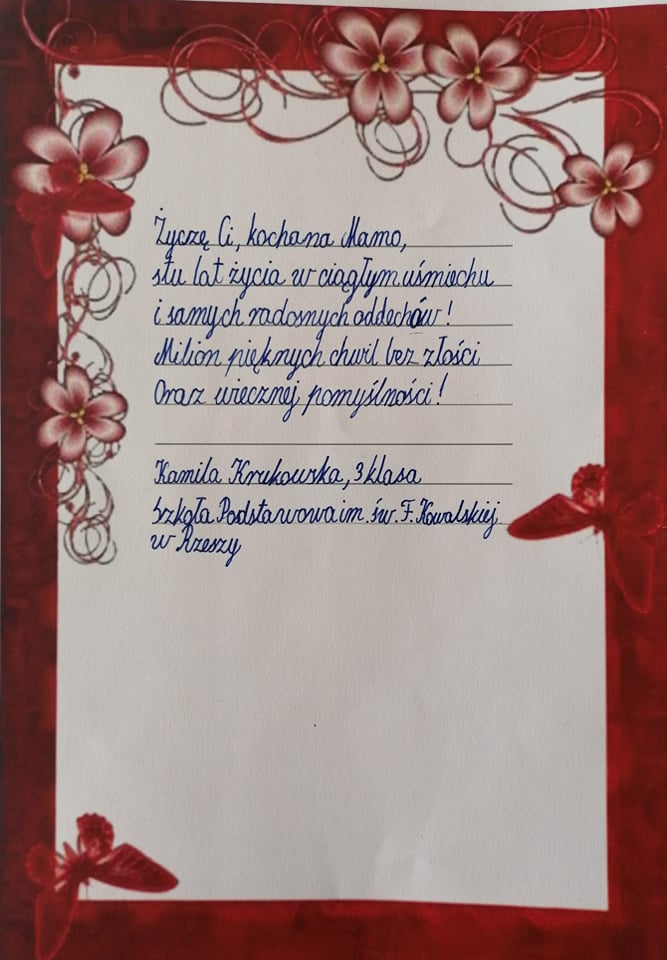 Życzę Ci, kochana Mamo,
stu lat życia w ciągłym uśmiechu
i samych radosnych oddechów!
Milion pięknych chwil bez złości
Oraz wiecznej pomyślności!
Kamila Krukowska, 3 klasa
Szkoła Podstawowa im. św. F. Kowalskiej
w Rzeszy